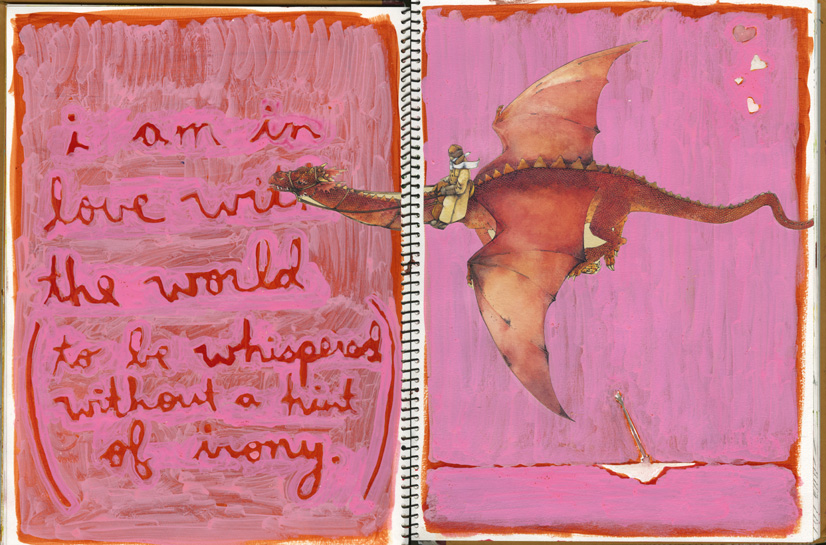 i am in
love with
the world
(to be whispered
without a hint
of irony.)